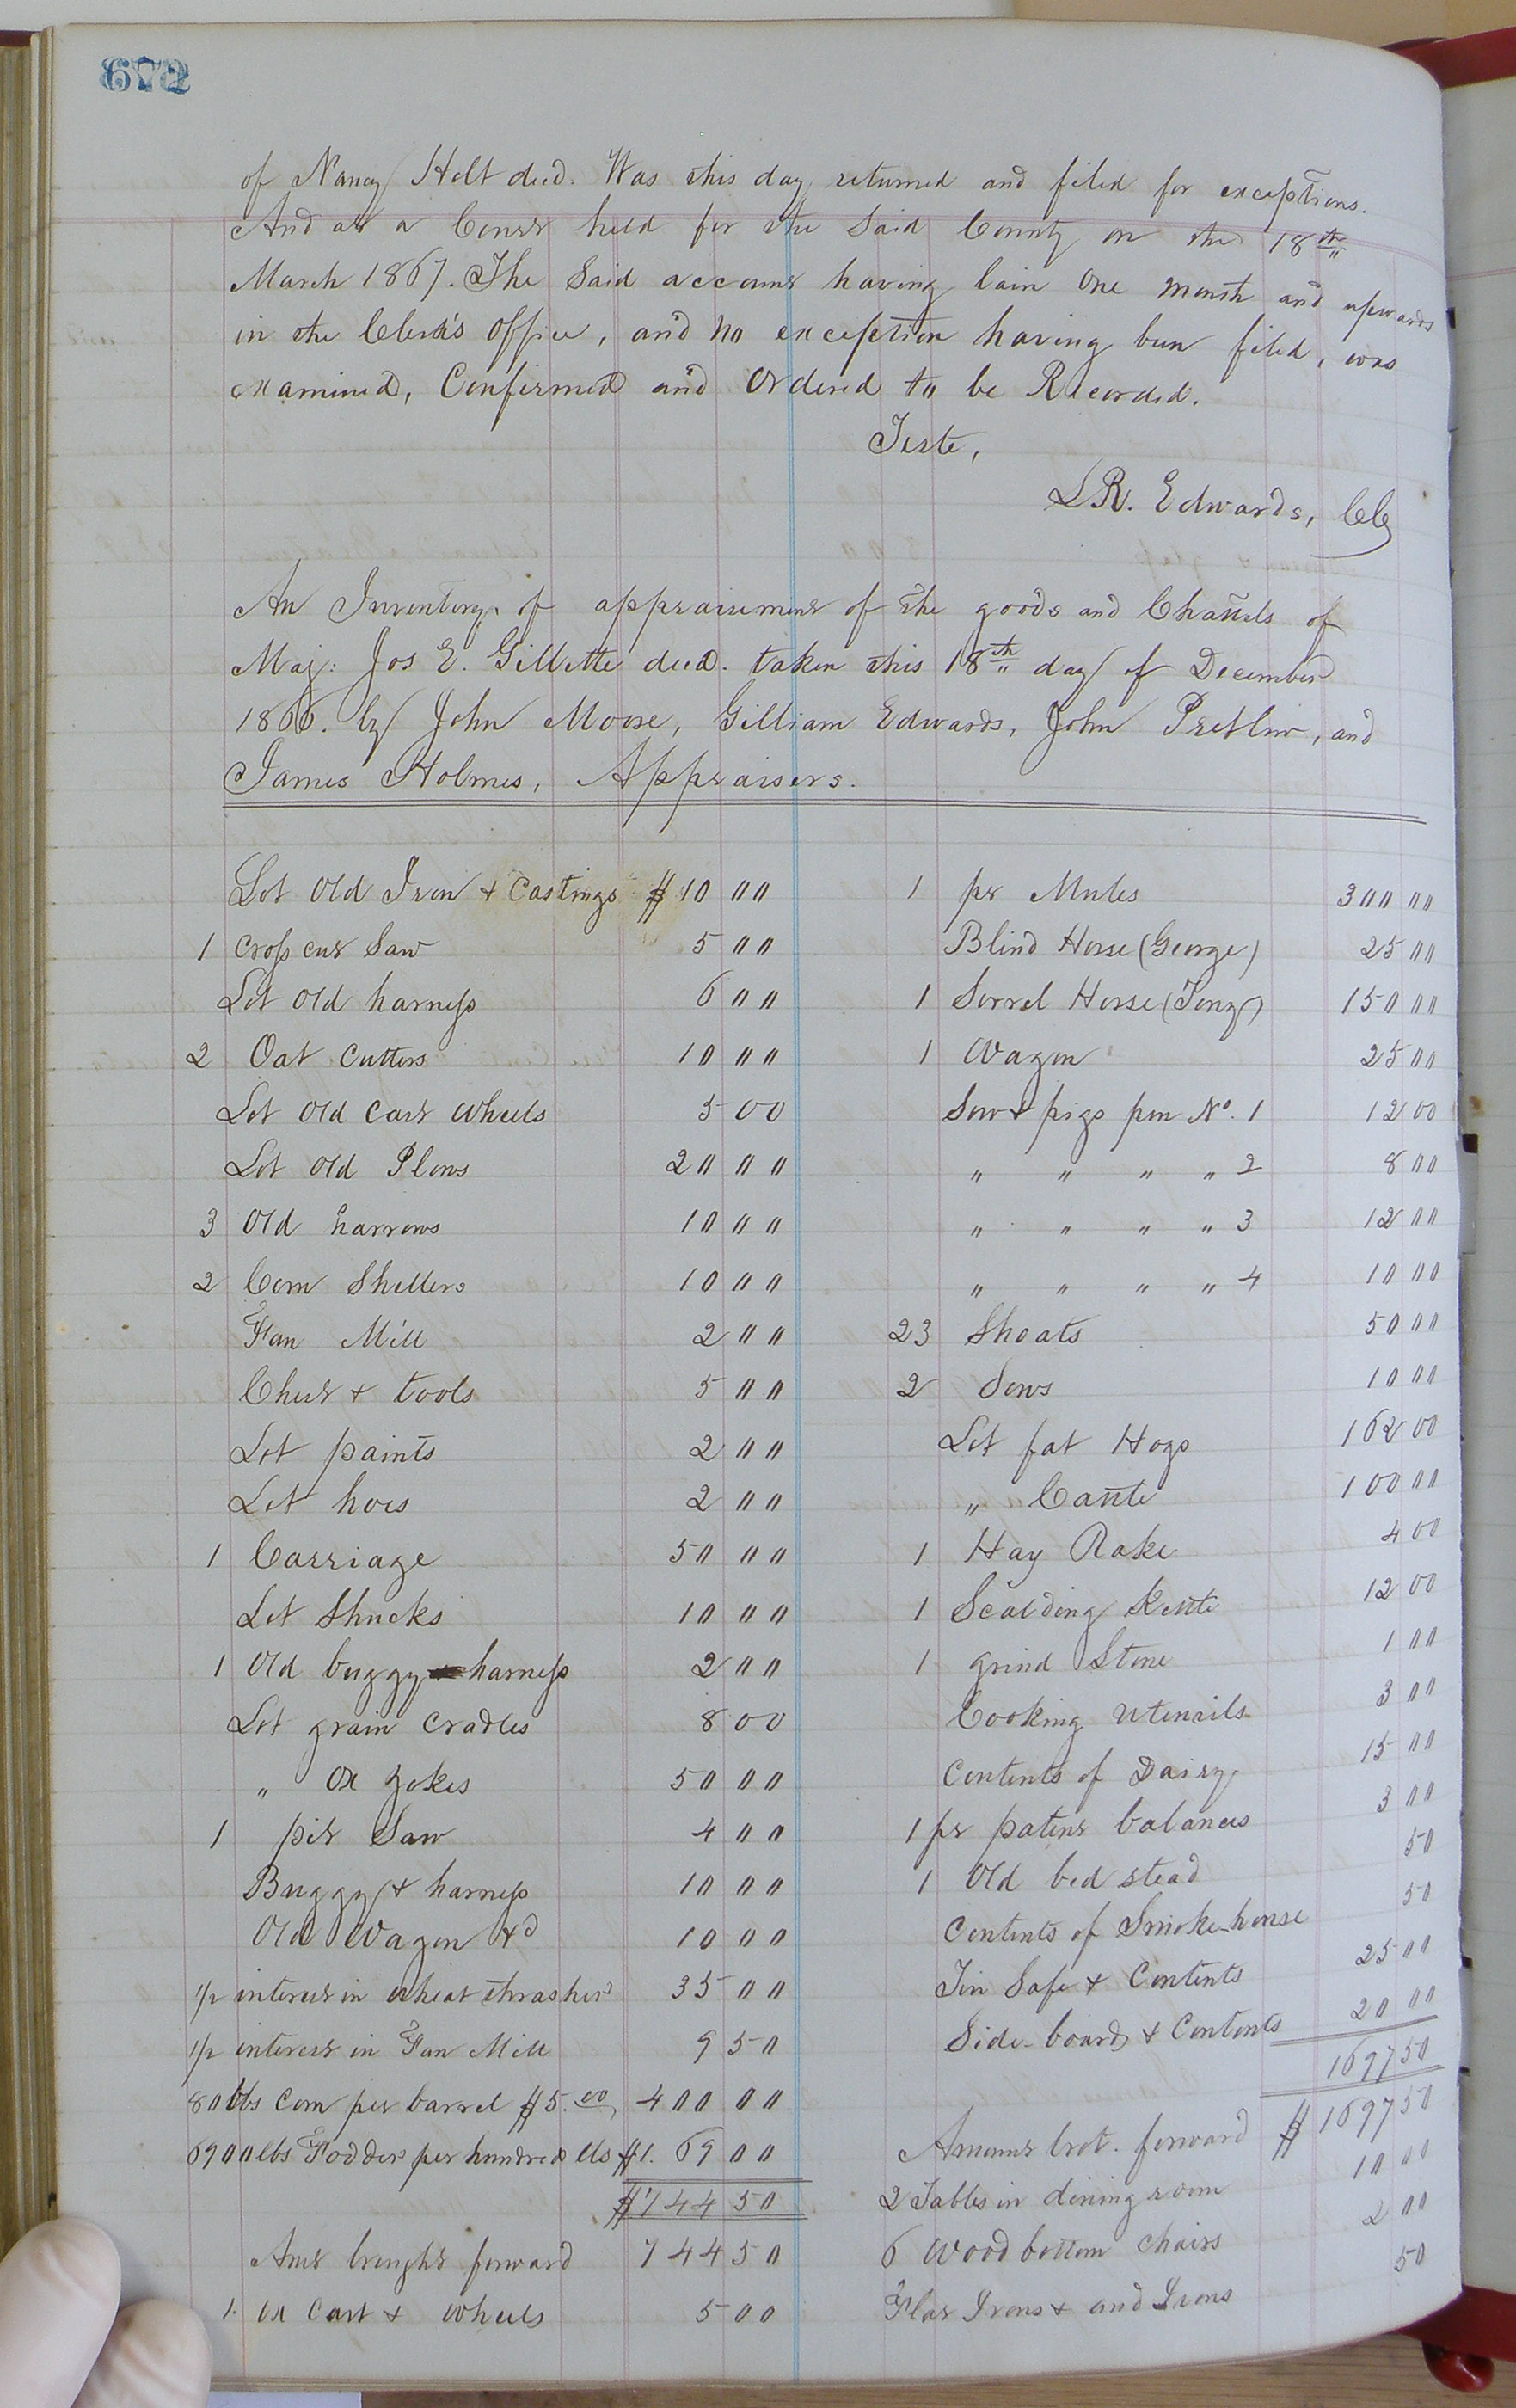 672
of Nancy Holt decd. Was this day returned and filed for exceptions.
And at a Court held for the Said County on the 18th
March 1867. The Said account having lain One Month and upwards
in the Clerk's Office, and no exception having been filed, was
examined, Confirmed and Ordered to be Recorded.
Teste,
L R. Edwards, Clk
An Inventory of appraisement of the goods and Chattels of
Maj: Jos E. Gillette decd. taken this 18th day of December
1866. by John Moore, Gilliam Edwards, John Pretlow, and
James Holmes, Appraisers.
Lot Old Iron & Castings $ 10 00
1 Cross cut Saw 5 00
Lot Old harness 6 00
2 Oat Cutters 10 00
Lot Old Cart Wheels 5 00
Lot Old Plows 20 00
3 Old harrows 10 00
2 Corn Shellers 10 00
Fan Mill 2 00
Chest & tools 5 00
Lot paints 2 00
Lot hoes 2 00
1 Carriage 50 00
Lot Shucks 10 00
1 Old buggy harness 2 00
Lot grain Cradles 8 00
" Ox Yokes 50 00
1 pit Saw 4 00
Buggy & harness 10 00
Old Wagon &d 10 00
1/2 interest in wheat thrasher 35 00
1/2 interest in Fan Mill 9 50
80 bbs Corn per barrel $5.00 400 00
6900 lbs Fodder per hundred lbs $1. 69 00
$744 50
Amt brought forward 744 50
1. Ox Cart & wheels 5 00
1 pr Mules 300 00
Blind Horse (George) 25 00
1 Sorrel Horse (Tony) 150 00
1 Wagon 25 00
Sow & pigs pen No. 1 12 00
" " " " 2 8 00
" " " " 3 12 00
" " " " 4 10 00
23 Shoats 50 00
2 Sows 10 00
Lot fat Hogs 162 00
" Cattle 100 00
1 Hay Rake 4 00
1 Scalding Kettle 12 00
1 grind Stone 1 00
Cooking Utensils 3 00
Contents of Dairy 15 00
1 pr patent balances 3 00
1 Old bed stead 50
Contents of Smoke-house 50
Tin Safe & Contents 25 00
Side-board & Contents 20 00
1697 50
Amount brot. forward $ 1697 50
2 Tables in dining room 10 00
6 Wood bottom chairs 2 00
Flat Irons & and Irons 50